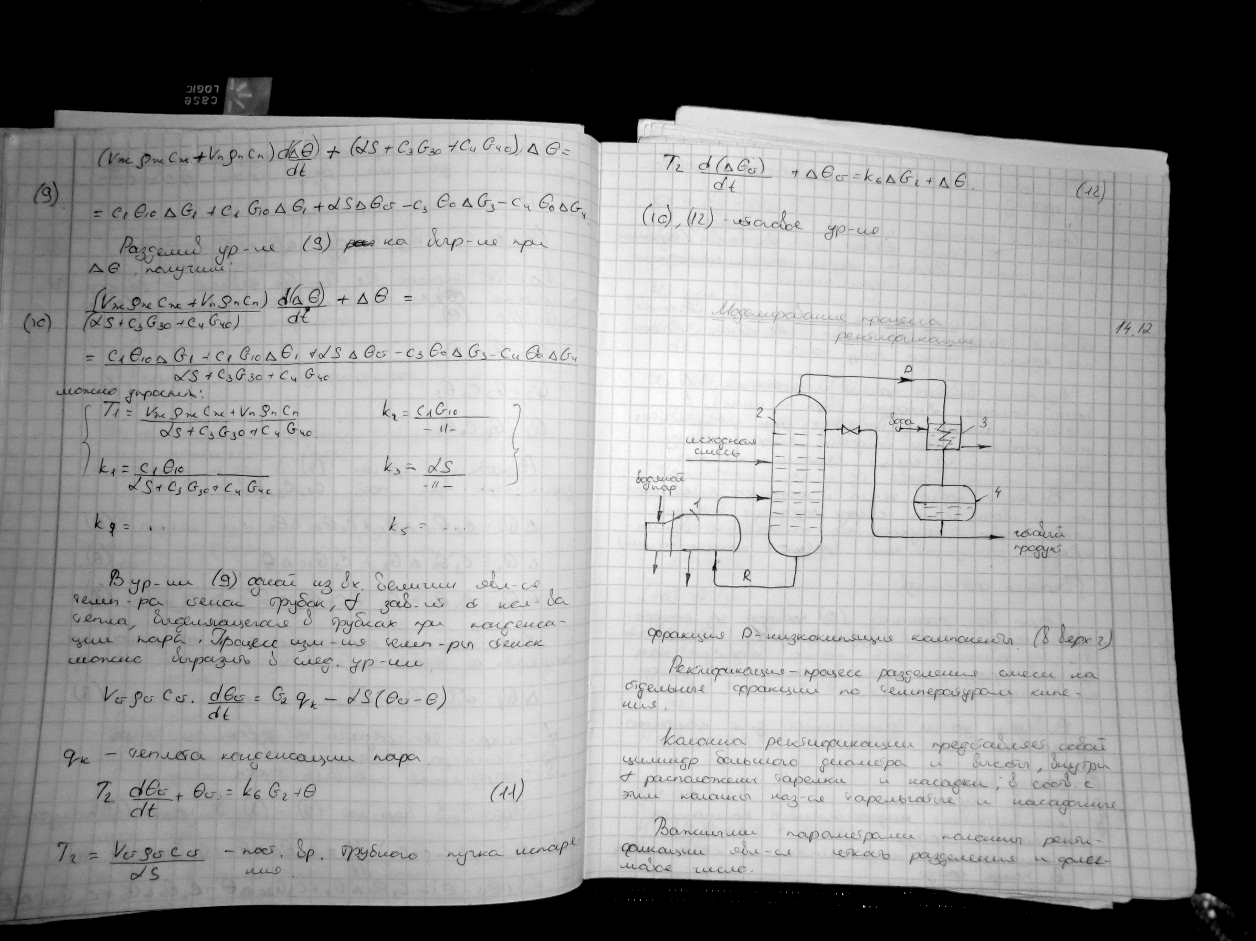 case
LOGIC
(Vж ρж Cж + Vп ρп Cп) d(Δθ)/dt + (αS + C3 G30 + C4 G40) Δθ =
(9)
= C1 θ10 ΔG1 + C1 G10 Δθ1 + αSΔθст − C3 θ0 ΔG3 − C4 θ0 ΔG4
Разделив ур-ие (9) на выр-ие при
Δθ получим:
(10) (Vж ρж Cж + Vп ρп Cп)/(αS + C3 G30 + C4 G40) d(Δθ)/dt + Δθ =
= (C1 θ10 ΔG1 + C1 G10 Δθ1 + αS Δθст − C3 θ0 ΔG3 − C4 θ0 ΔG4)/(αS + C3 G30 + C4 G40)
можно упростить:
T1 = (Vж ρж Cж + Vп ρп Cп)/(αS + C3 G30 + C4 G40) k2 = C1 G10/-//-
k1 = C1 θ10/(αS + C3 G30 + C4 G40) k3 = αS/-//-
k4 = ... k5 = ...
В ур-ии (9) одной из вх. величин явл-ся
темп-ра стенок трубок, зав-ит от кол-ва
тепла, выделяющегося в трубках при конденса-
ции пара. Процесс изм-ия темп-ры стенок
можно выразить в след. ур-ии
Vст ρст Cст · dθст/dt = G2 qк − αS(θст − θ)
qк − теплота конденсации пара
T2 dθст/dt + θст = k6 G2 + θ (11)
T2 = Vст ρст Cст/αS − пост. вр. трубного пучка испаре-
ния.
T2 d(Δθст)/dt + Δθст = k6 ΔG2 + Δθ. (12)
(10), (12) − итоговое ур-ие
Моделирование процесса
ректификации
14.12
D
2
вода
3
исходная
смесь
водяной
пар
1
4
готовый
продукт
R
фракция D − низкокипящие компоненты (в верх 2)
Ректификация − процесс разделения смеси на
отдельные фракции по температурам кипе-
ния.
Колонна ректификации представляет собой
цилиндр большого диаметра и высоты, внутри
расположены тарелки и насадки; в соотв. с
этим колонны наз-ся тарельчатые и насадочные
Важными параметрами колонны ректи-
фикации явл-ся четкость разделения и флег-
мовое число.